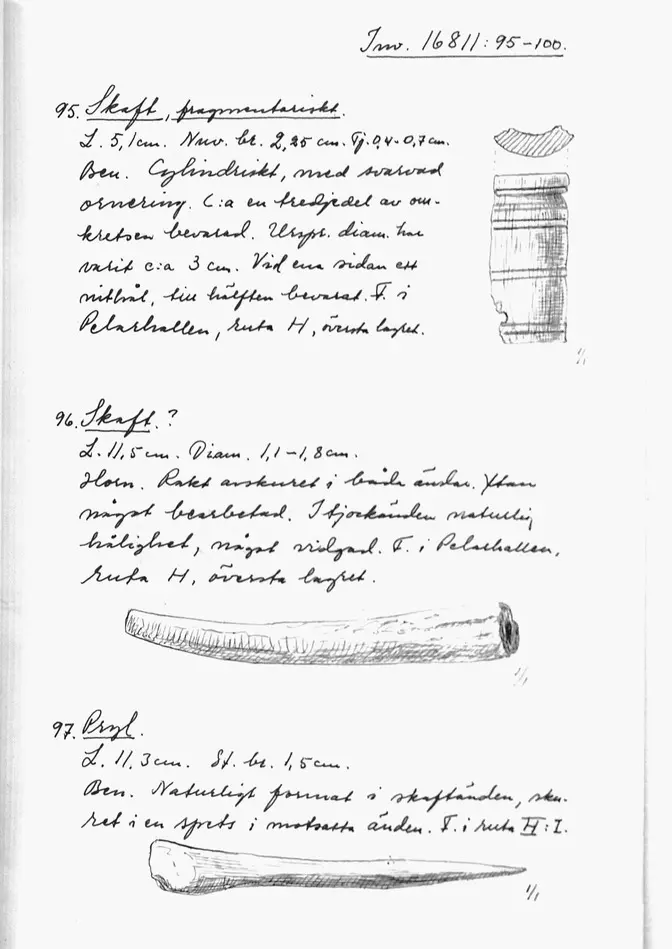 Inv. 16811:95-100.
95. Skaft, fragmentariskt.
L. 5,1cm. Nuv. br. 2,25 cm. Tj. 0,4-0,7cm.
Ben. Cylindriskt, med svarvad
ornering. C:a en tredjedel av om-
kretsen bevarad. Urspr. diam. har
varit c:a 3 cm. Vid ena sidan ett
nithål, till hälften bevarat. F. i
Pelarhallen, ruta H, översta lagret.
1/1
96. Skaft.?
L. 11,5 cm. Diam. 1,1-1,8cm.
Horn. Rakt avskuret i båda ändar. Ytan
något bearbetad. I tjockänden naturlig
hålighet, något vidgad. F. i Pelarhallen,
ruta H, översta lagret.
1/1
97. Pryl.
L. 11,3cm. St. br. 1,5cm.
Ben. Naturligt format i skaftänden, sku-
ret i en spets i motsatta änden. F. i ruta H:I.
1/1